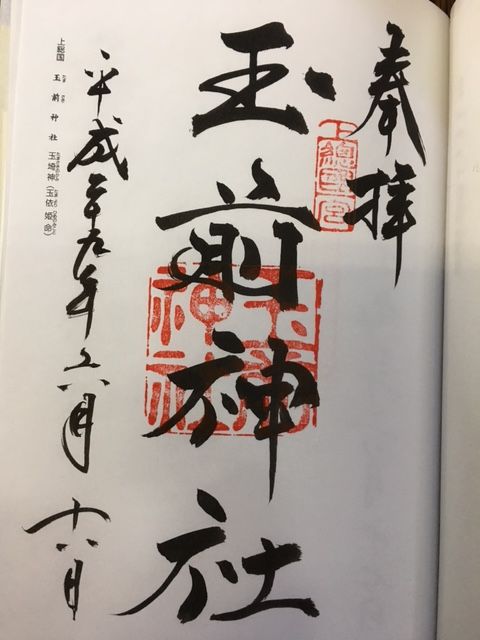 奉拝
玉前神社
玉前神社
平成二十九年六月十八日
上総国 玉前神社 玉埼神(玉依姫命)